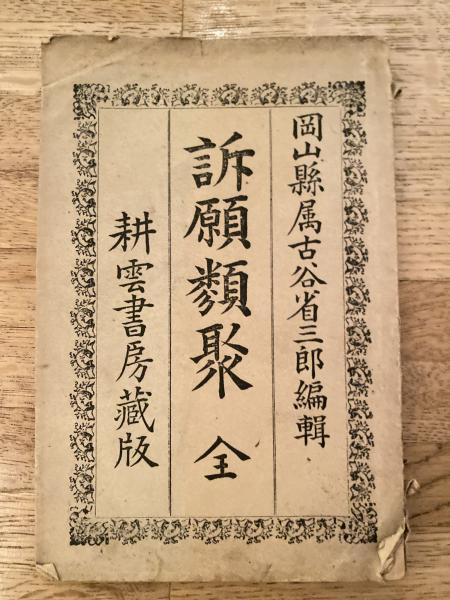 岡山縣属古谷省三郎編輯
訴願類聚 全
耕雲書房藏版